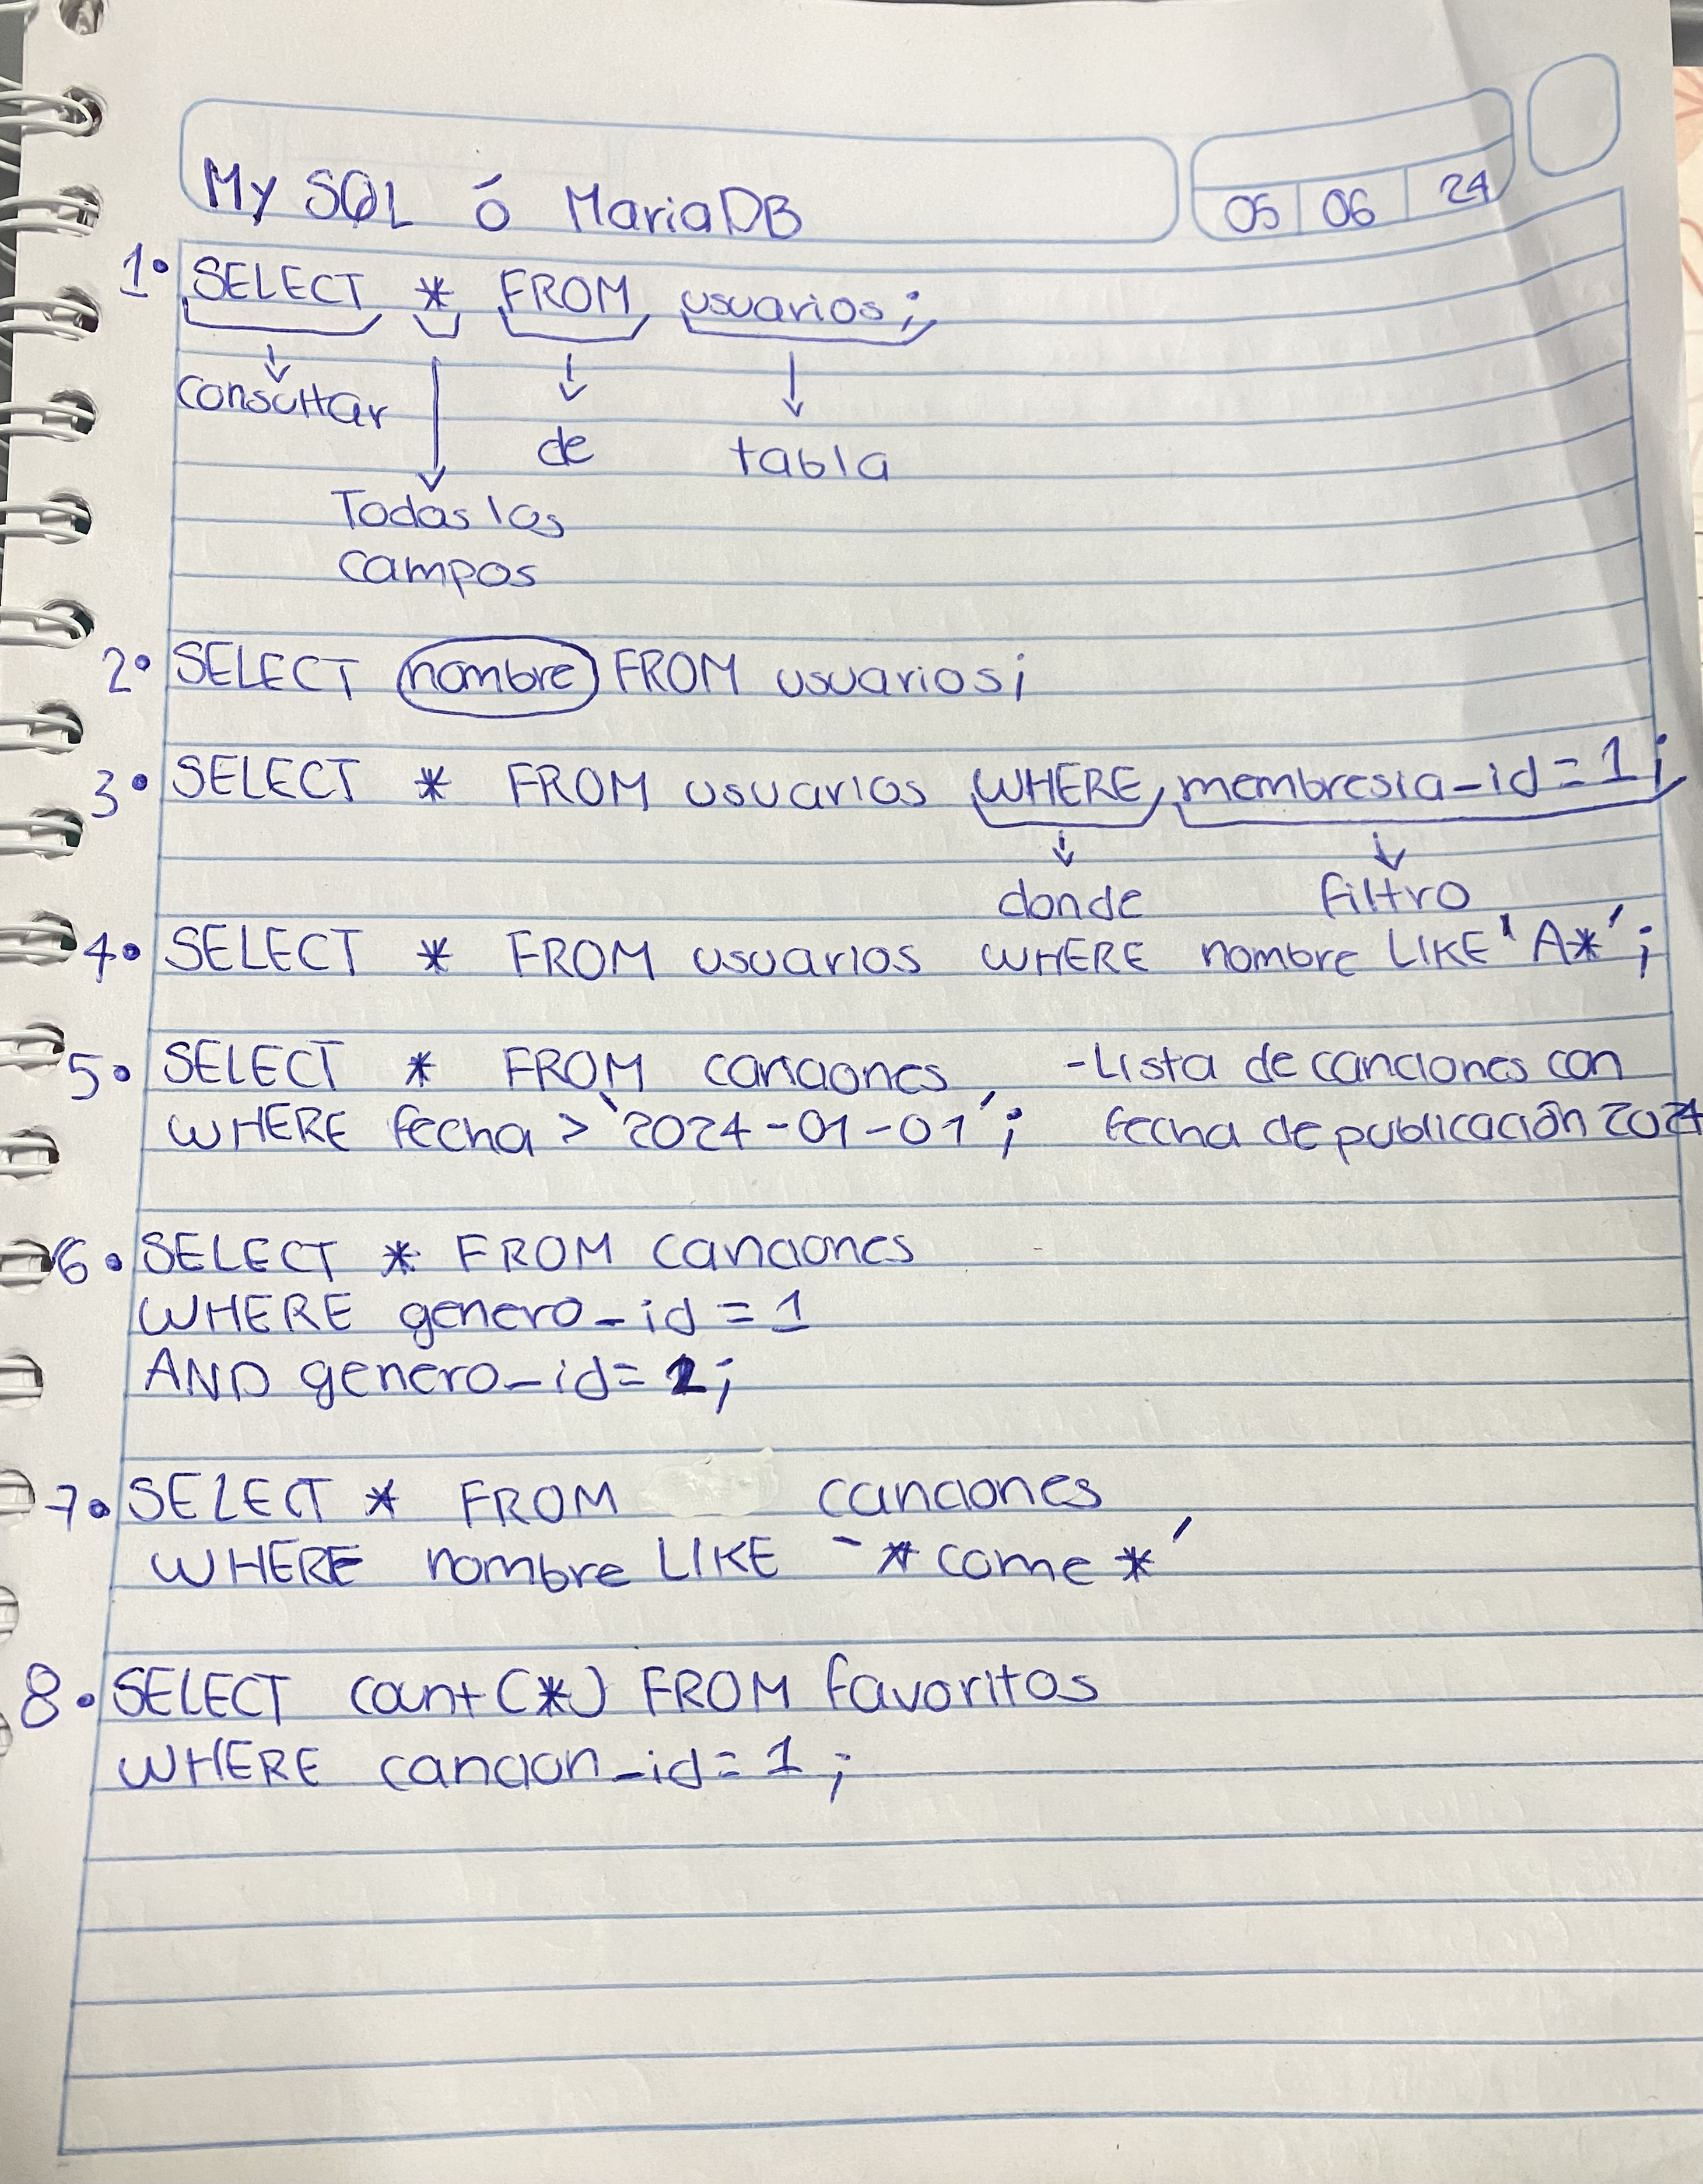 My SQL ó MariaDB
05 06 24
1• SELECT * FROM usuarios;
consultar
de tabla
Todos los
campos
2• SELECT nombre FROM usuarios;
3• SELECT * FROM usuarios WHERE membresia_id = 1;
donde filtro
4• SELECT * FROM usuarios WHERE nombre LIKE 'A*';
5• SELECT * FROM canciones - Lista de canciones con
WHERE fecha > '2024-01-01'; fecha de publicación 2024
6• SELECT * FROM canciones
WHERE genero_id = 1
AND genero_id = 2;
7• SELECT * FROM canciones
WHERE nombre LIKE '*come*'
8• SELECT count (*) FROM favoritos
WHERE cancion_id = 1;